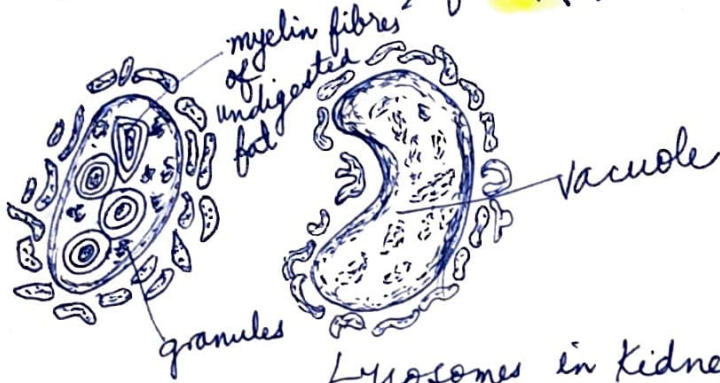 myelin fibres
of
undigested
fat
vacuole
granules
Lysosomes in Kidne